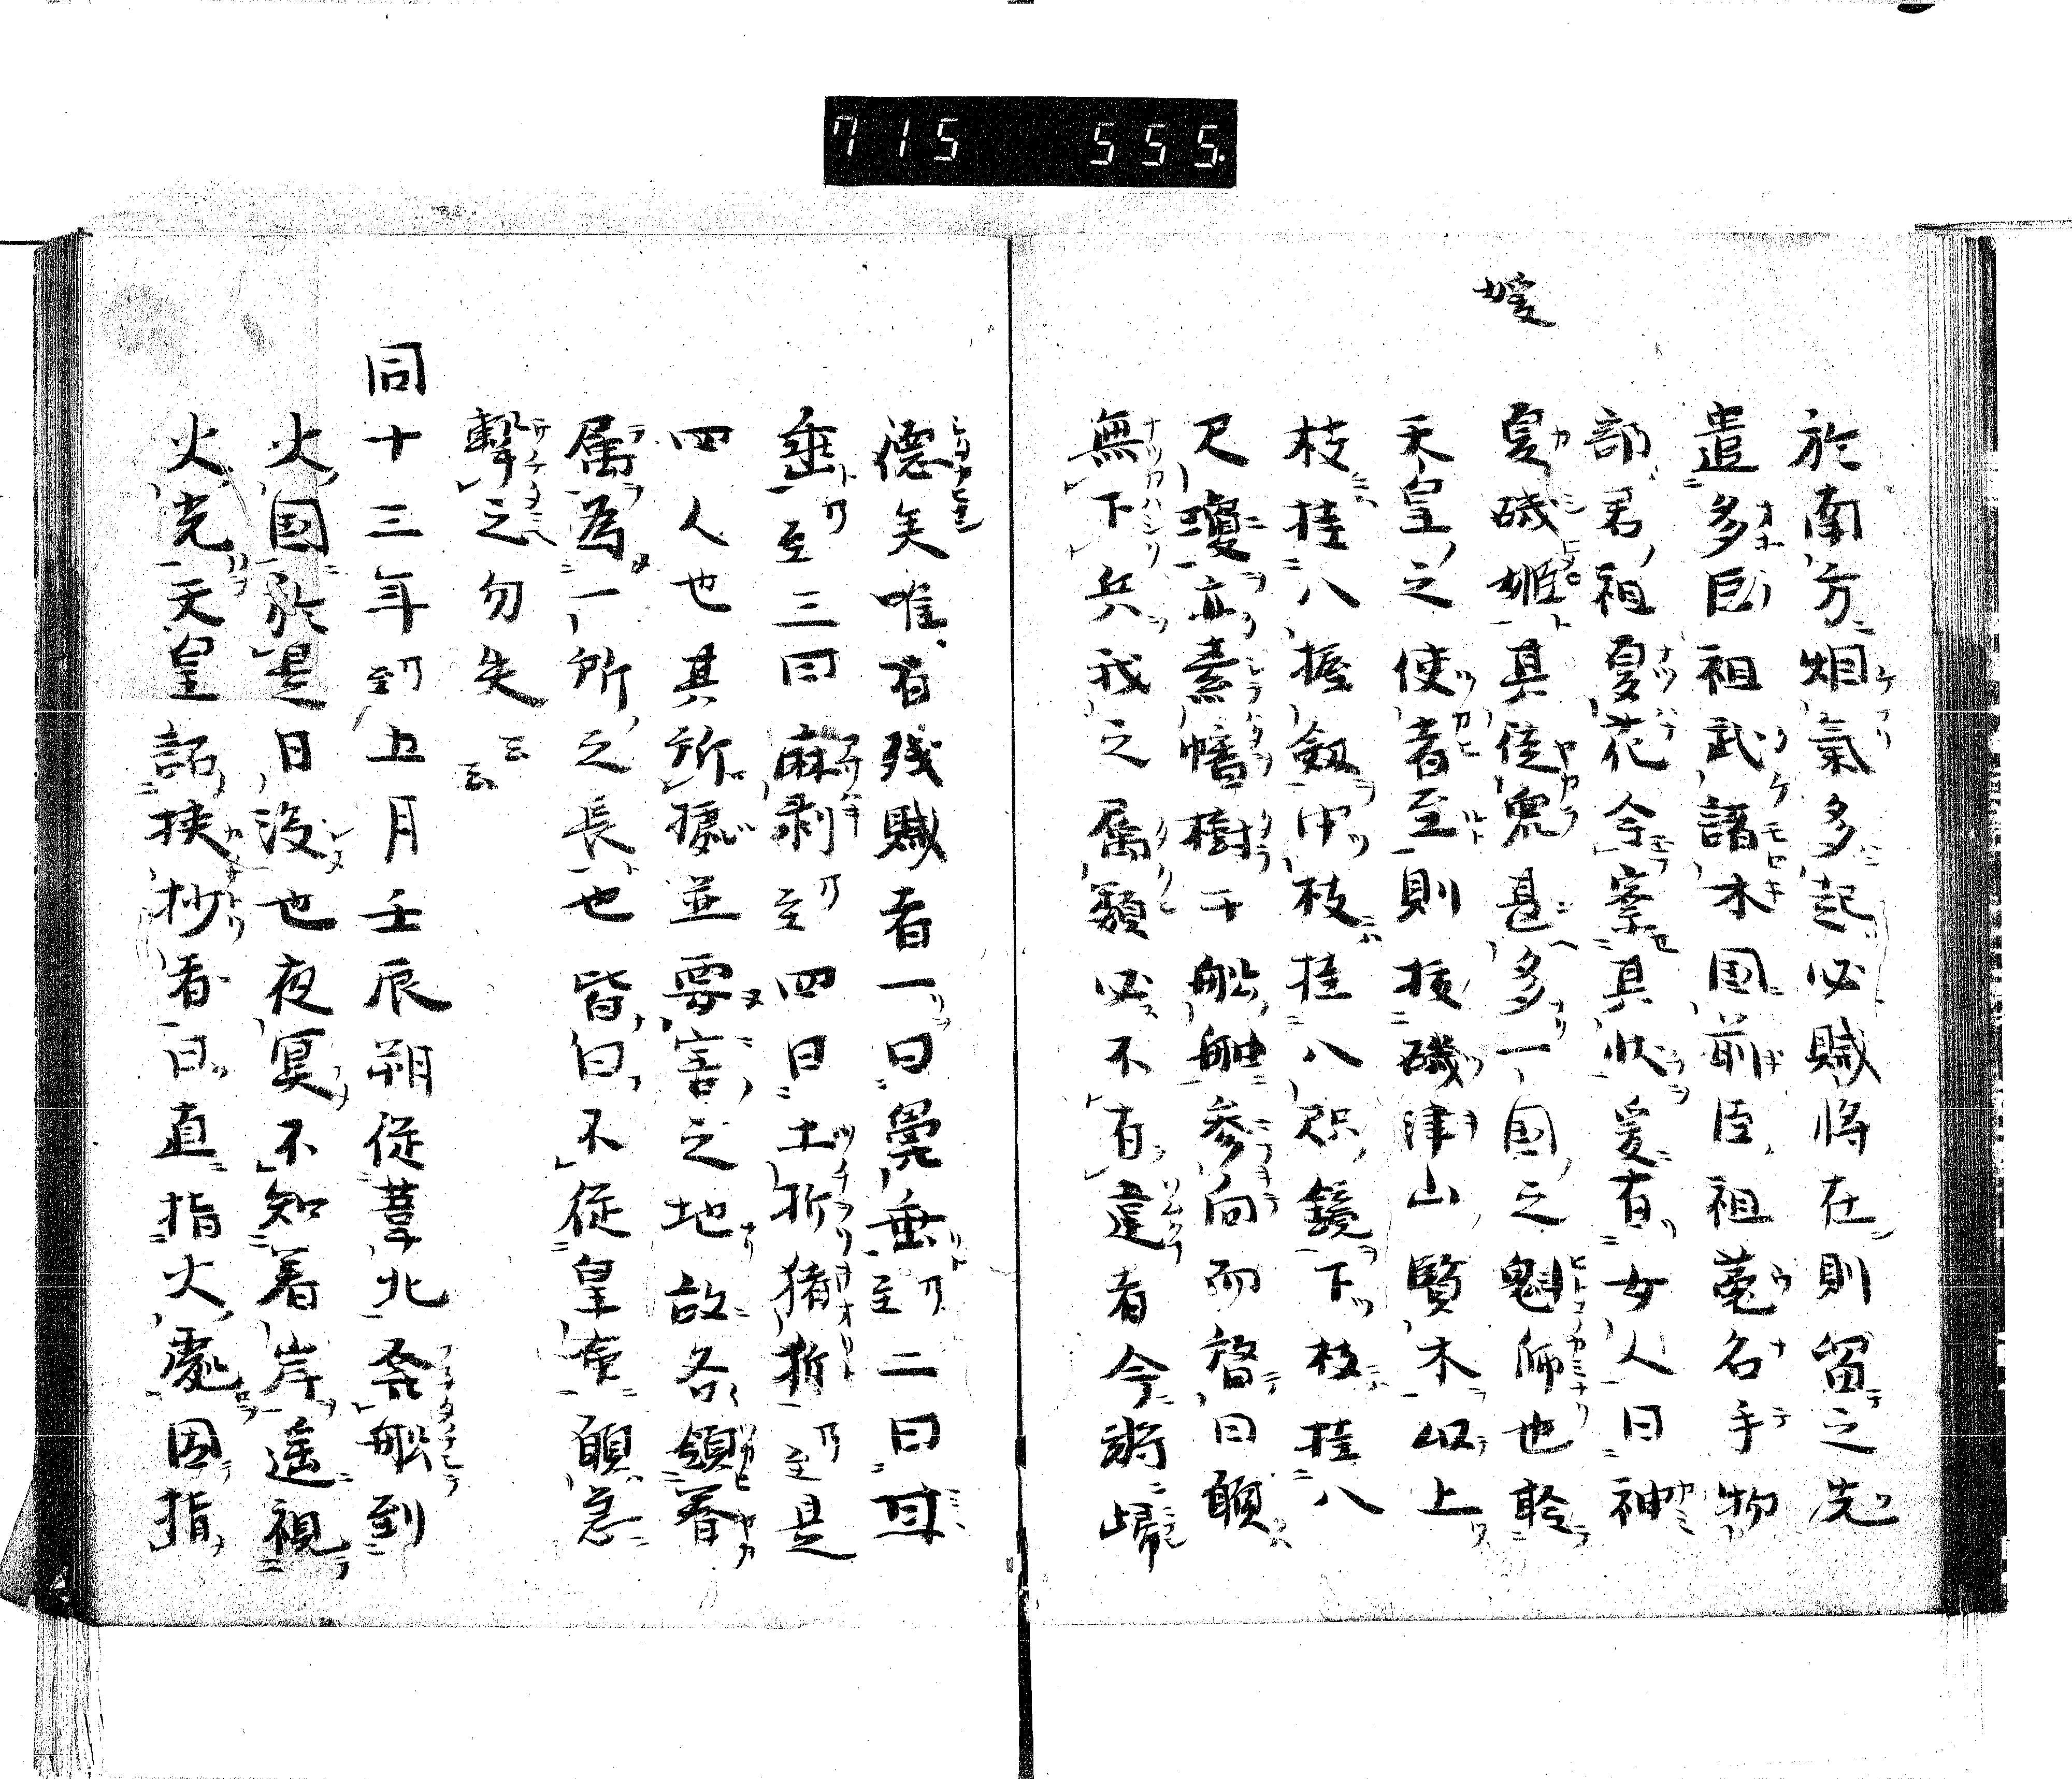 715 555.
媛
於南方烟氣多起必賊将在則留之先
遣多臣祖武諸木国前臣祖菟名手物
部君祖夏花令察其状爰有女人曰神
夏磯姫其徒衆甚多一国之魁師也聆
天皇之使者至則抜磯津山賢木以上
枝挂八握剱中枝挂八咫鏡下枝挂八
尺瓊立素幡樹于舩舳参向而啓曰願
無下兵我之属類必不有違者今将帰
徳矣唯有残賊者一曰鼻垂乃至二曰耳
垂乃至三曰麻剥乃至四曰土折猪折乃至是
四人也其所據並要害之地故各領眷
属為一所之長也皆曰不従皇命願急
撃之勿失云云
同十三年乃至五月壬辰朔従葦北発舩到
火国於是日没也夜冥不知着岸遥視
火光天皇詔挟抄者曰直指火處因指